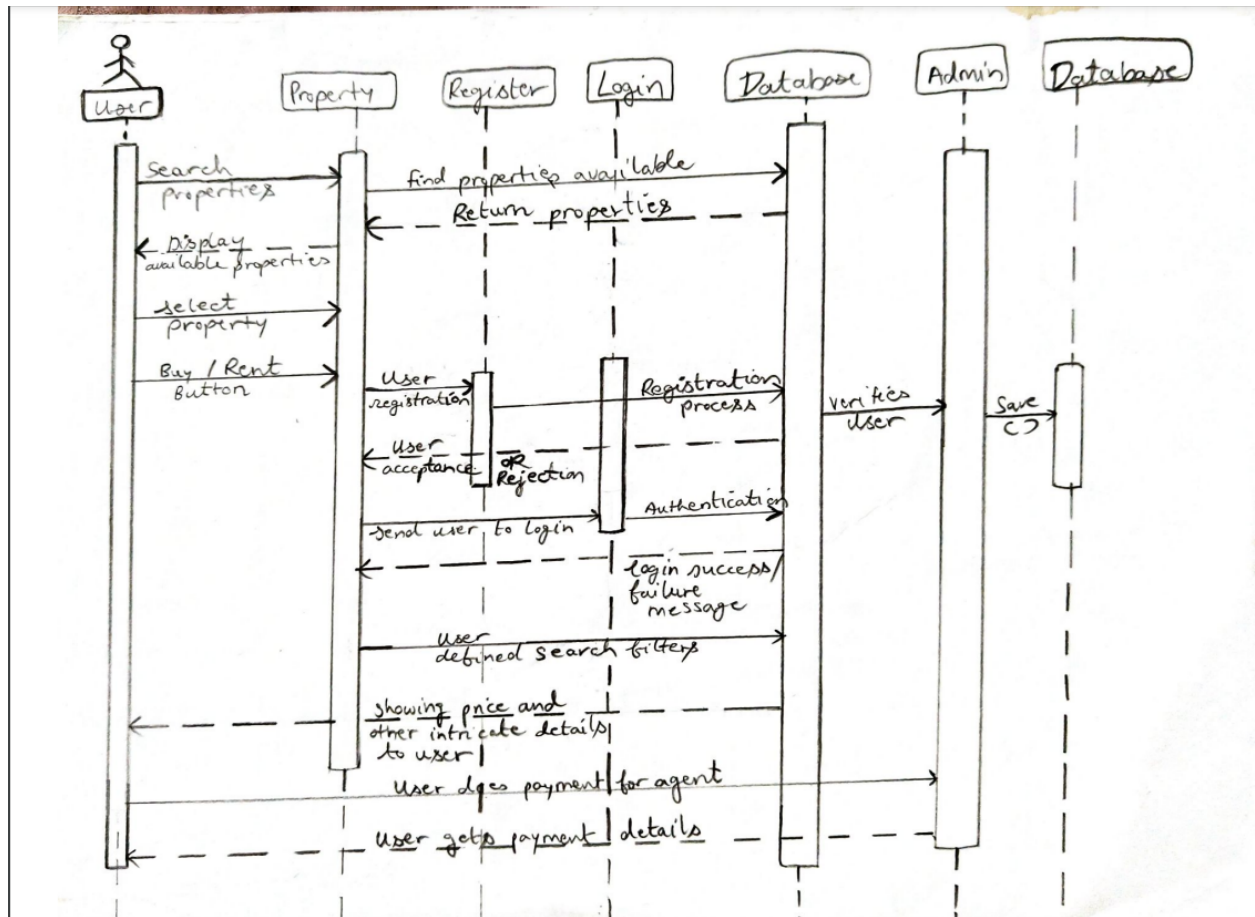 User
Property
Register
Login
Database
Admin
Database
Search
properties
find properties available
Return properties
Display
available properties
select
property
Buy / Rent
Button
User
registration
Registration
process
verifies
User
Save
()
User
acceptance
OR
Rejection
send user to login
Authentication
login success/
failure
message
User
defined search filters
showing price and
other intricate details
to user
User does payment for agent
User gets payment details